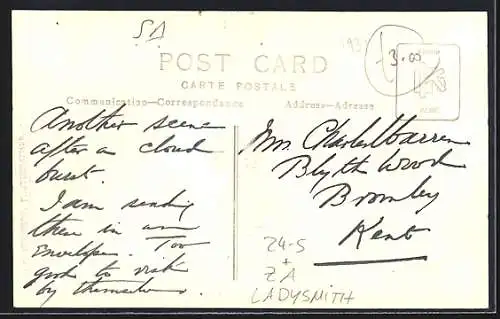 SA
193
3.00
POST CARD
CARTE POSTALE
Communication—Correspondance
Address—Adresse
Another scene
after a cloud
burst.
I am sending
these in an
envelope. Too
good to risk
by themselves.
Mrs. Charles Warren
Blyth Wood
Bromley
Kent
24-5
+
ZA
LADYSMITH